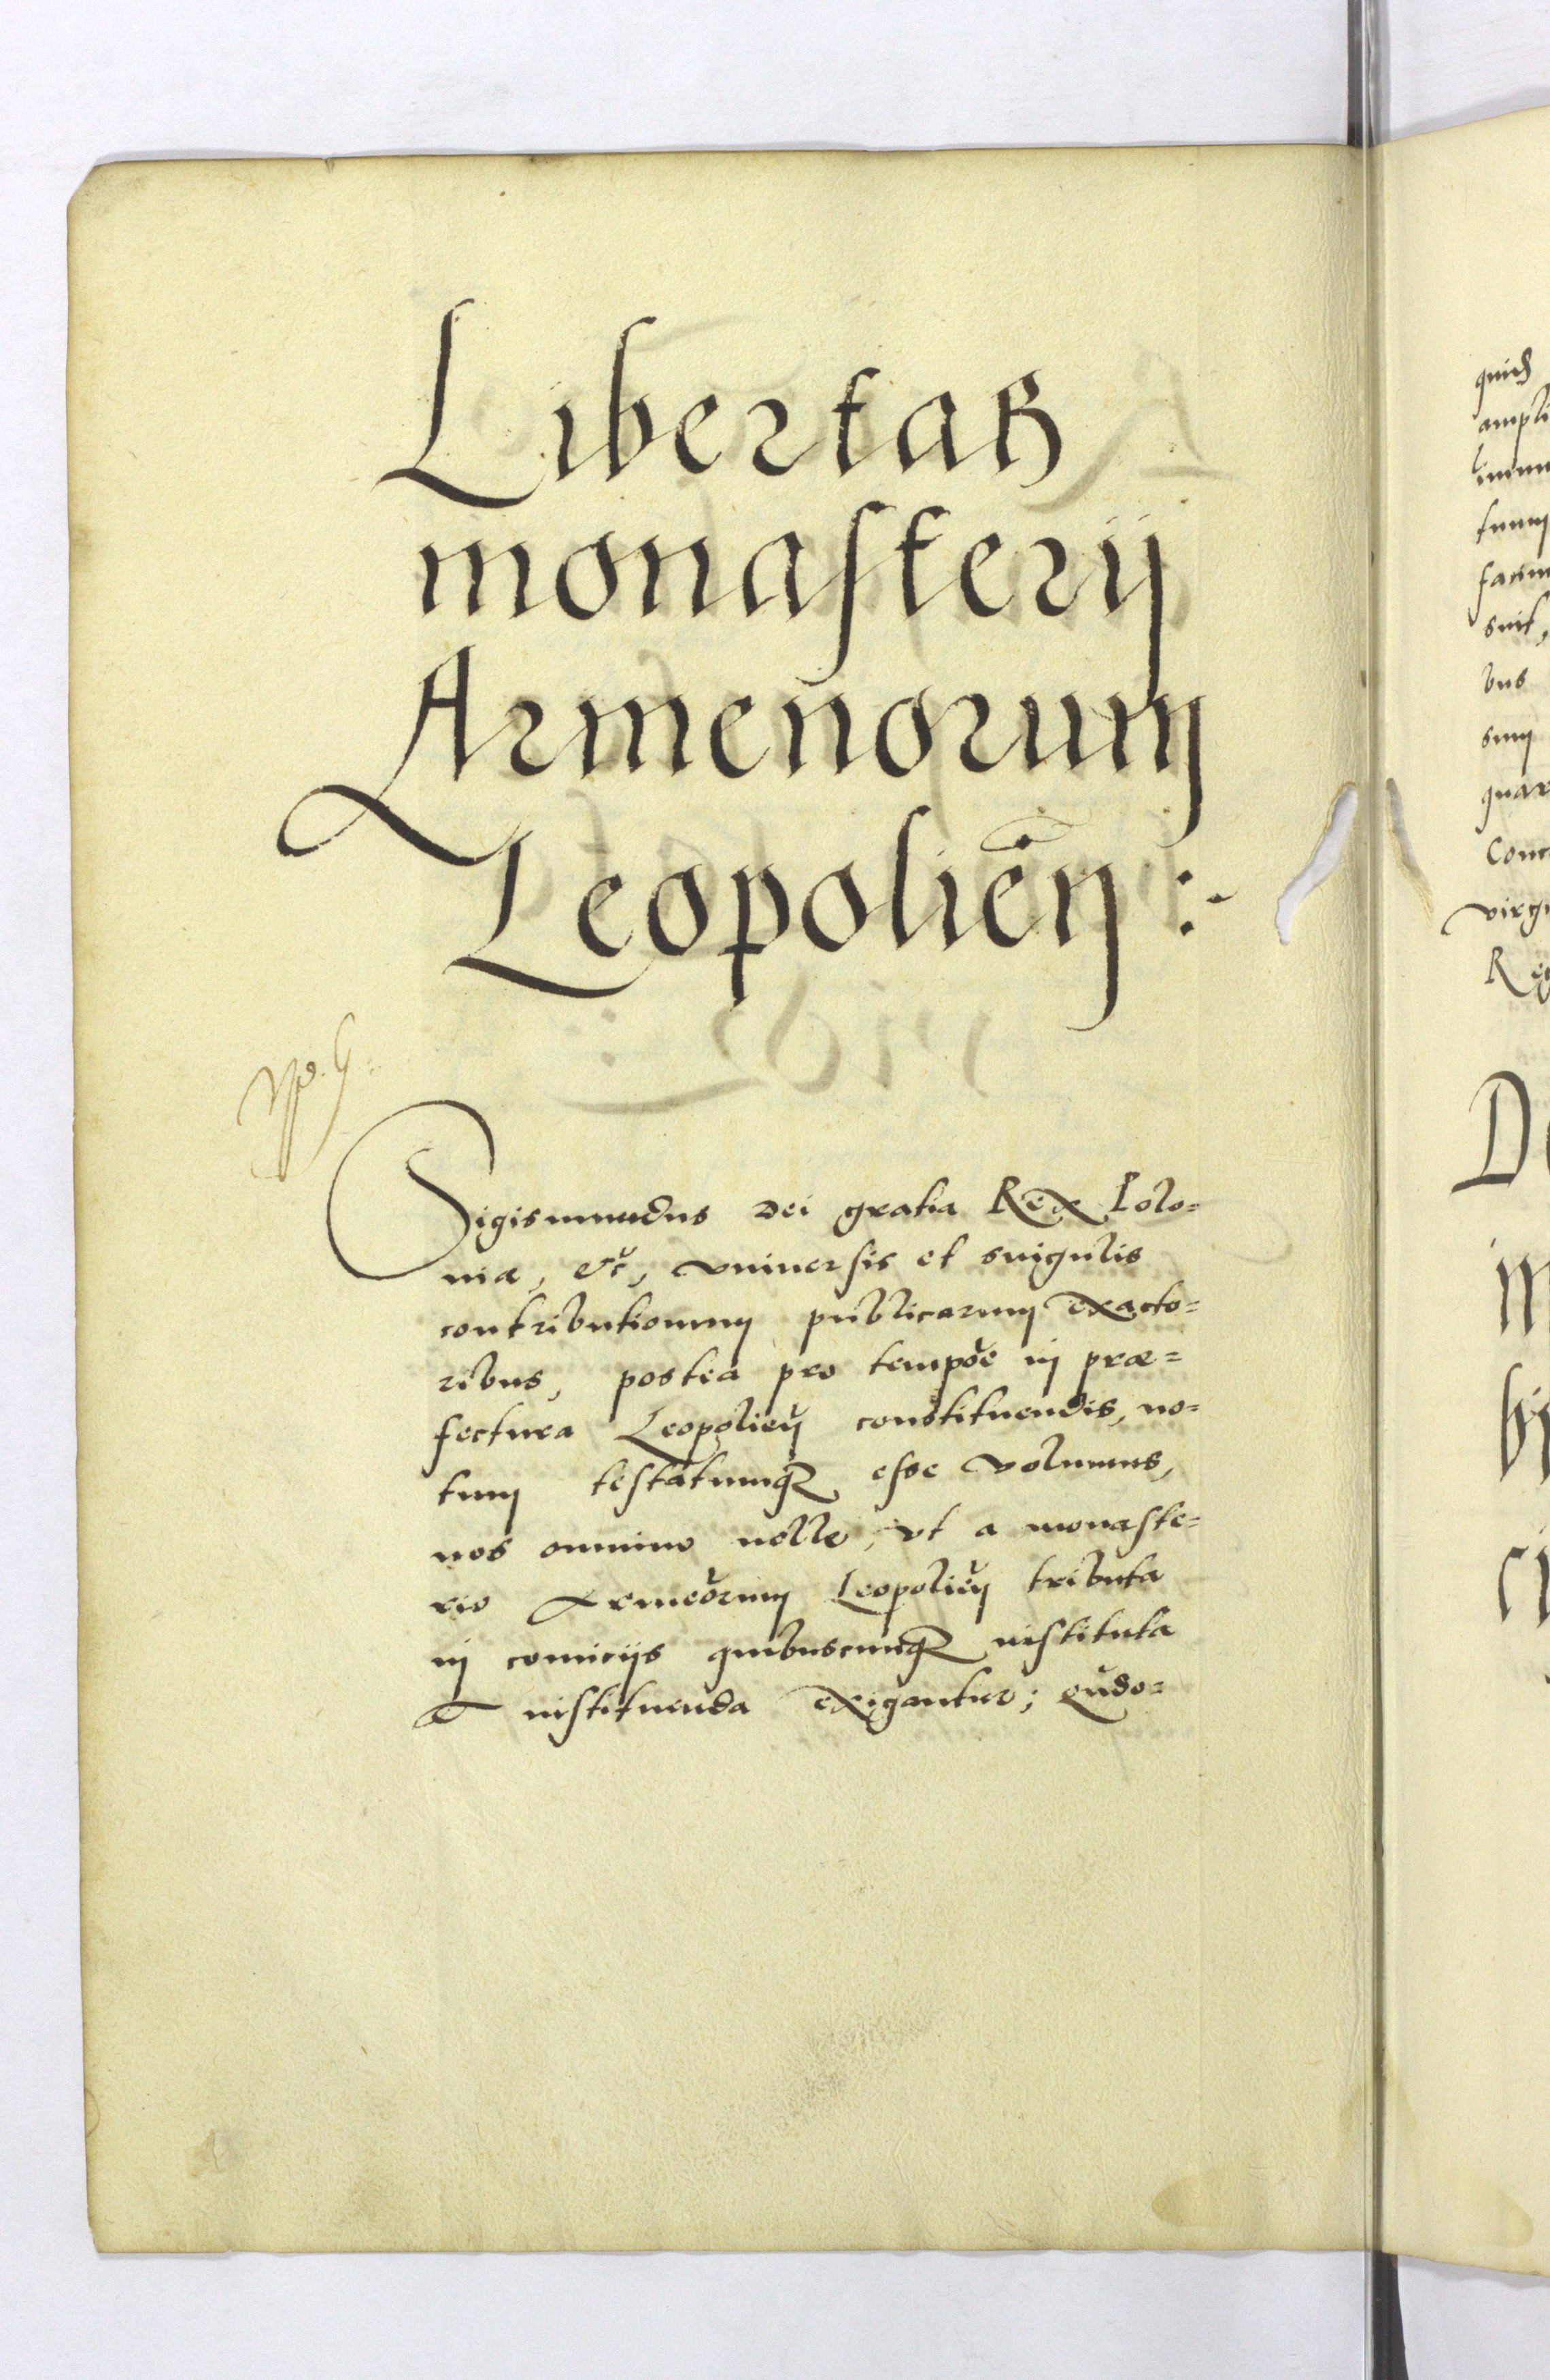 Libertas
monasterij
Armenorum
Leopolien̄ :~
Sigismundus Dei gratia Rex Polo=
niæ, etc̃, vniuersis et singulis
contributionum publicarum exacto=
ribus, postea pro tempõe in præ=
fectura Leopolien̄ constituendis, no=
tum testatumq3 esse volumus,
nos omnino nolle, vt a monaste=
rio Armeõrum Leopolien̄ tributa
in comicijs quibuscunq3 instituta
et instituenda exigantur; qũdo=